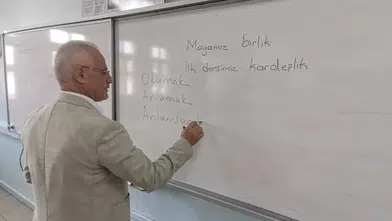 Mayamız birlik
İlk dersimiz kardeşlik
Okumak
Anlamak